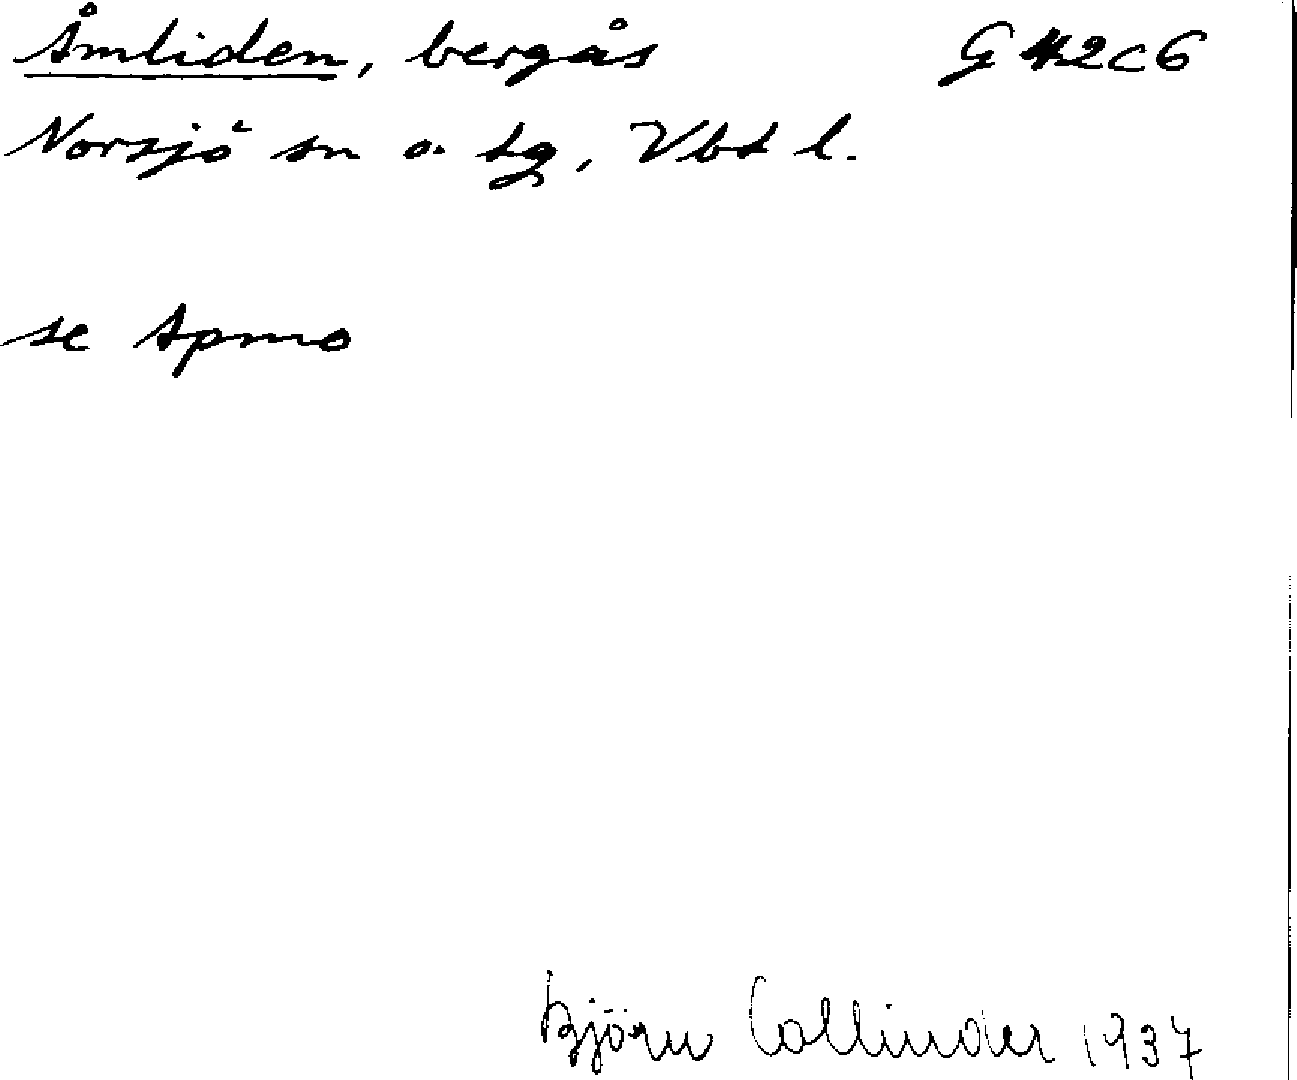 Åmliden, bergås G 42c6
Norsjö sn o. tg, Vbt l.
se Apmo
Björn Collinder 1937